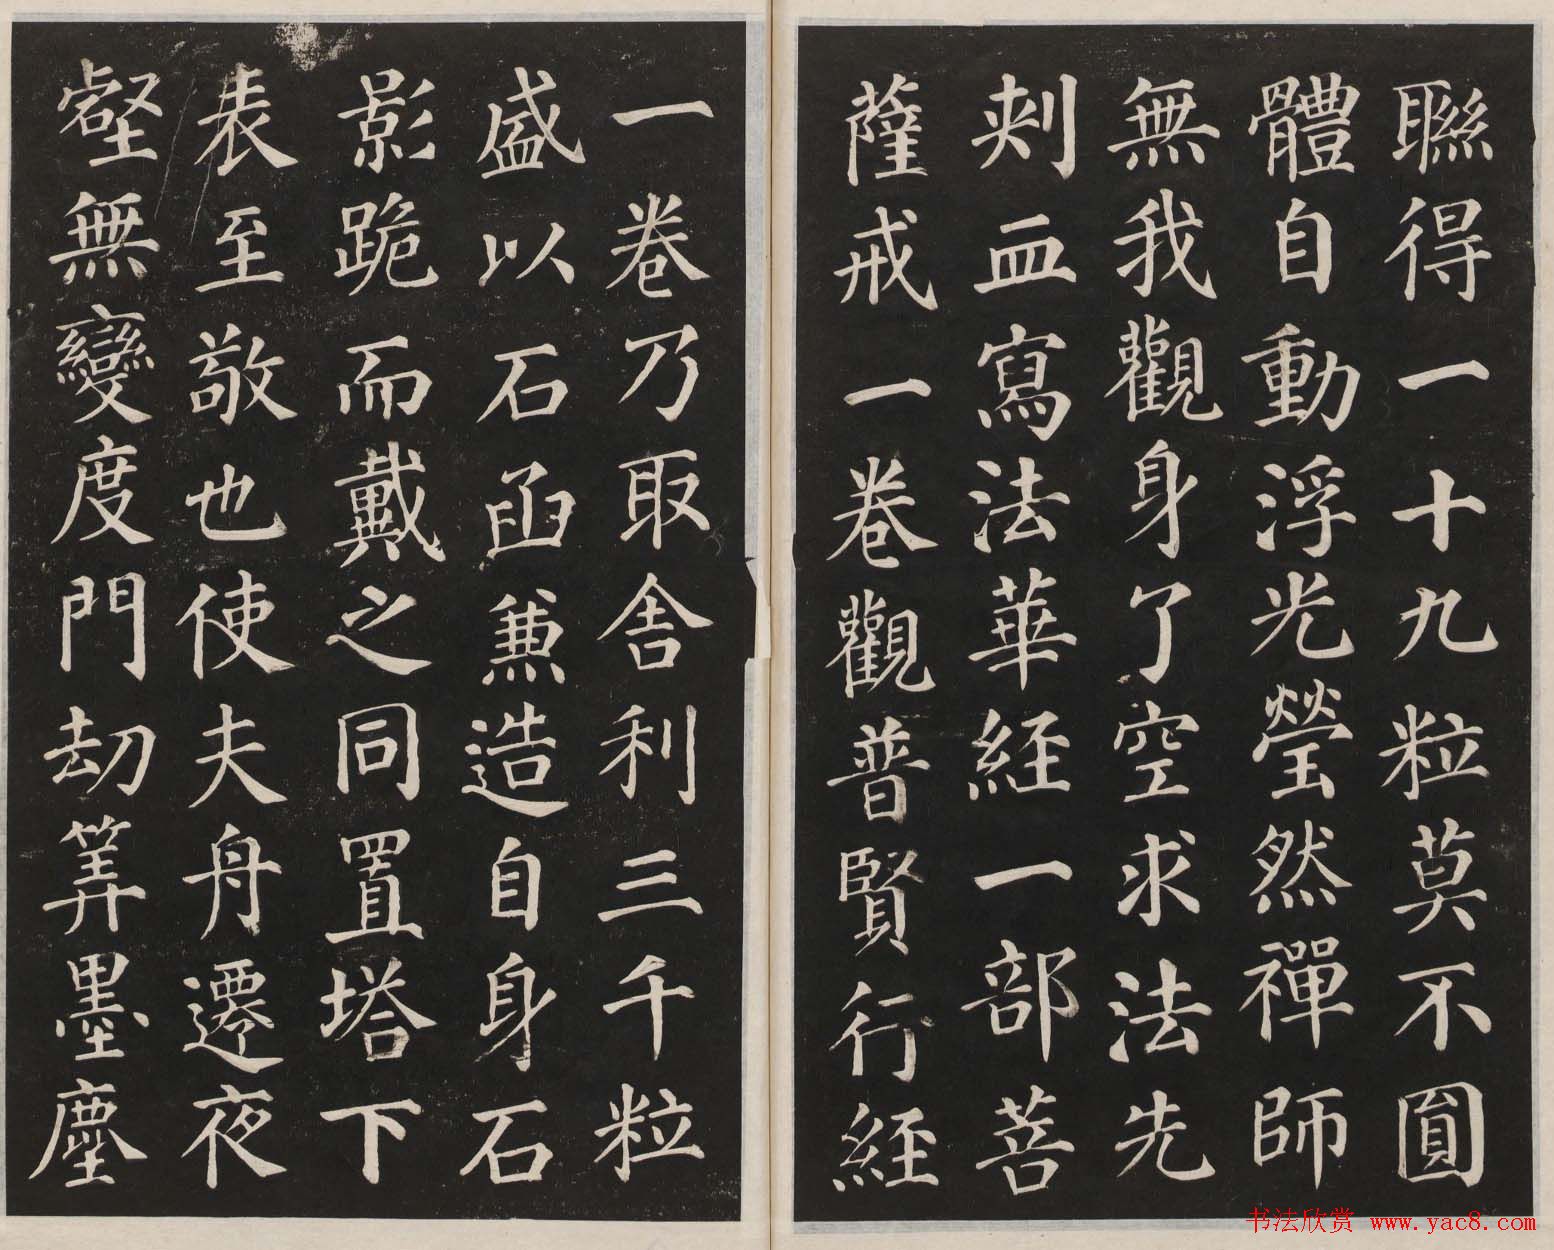 聮得一十九粒莫不圓
體自動浮光瑩然禪師
無我觀身了空求法先
刾血寫法華經一部菩
薩戒一卷觀普賢行經
一卷乃取舍利三千粒
盛以石函兼造自身石
影跪而戴之同置塔下
表至敬也使夫舟遷夜
壑無變度門劫筭墨塵
书法欣赏 www.yac8.com